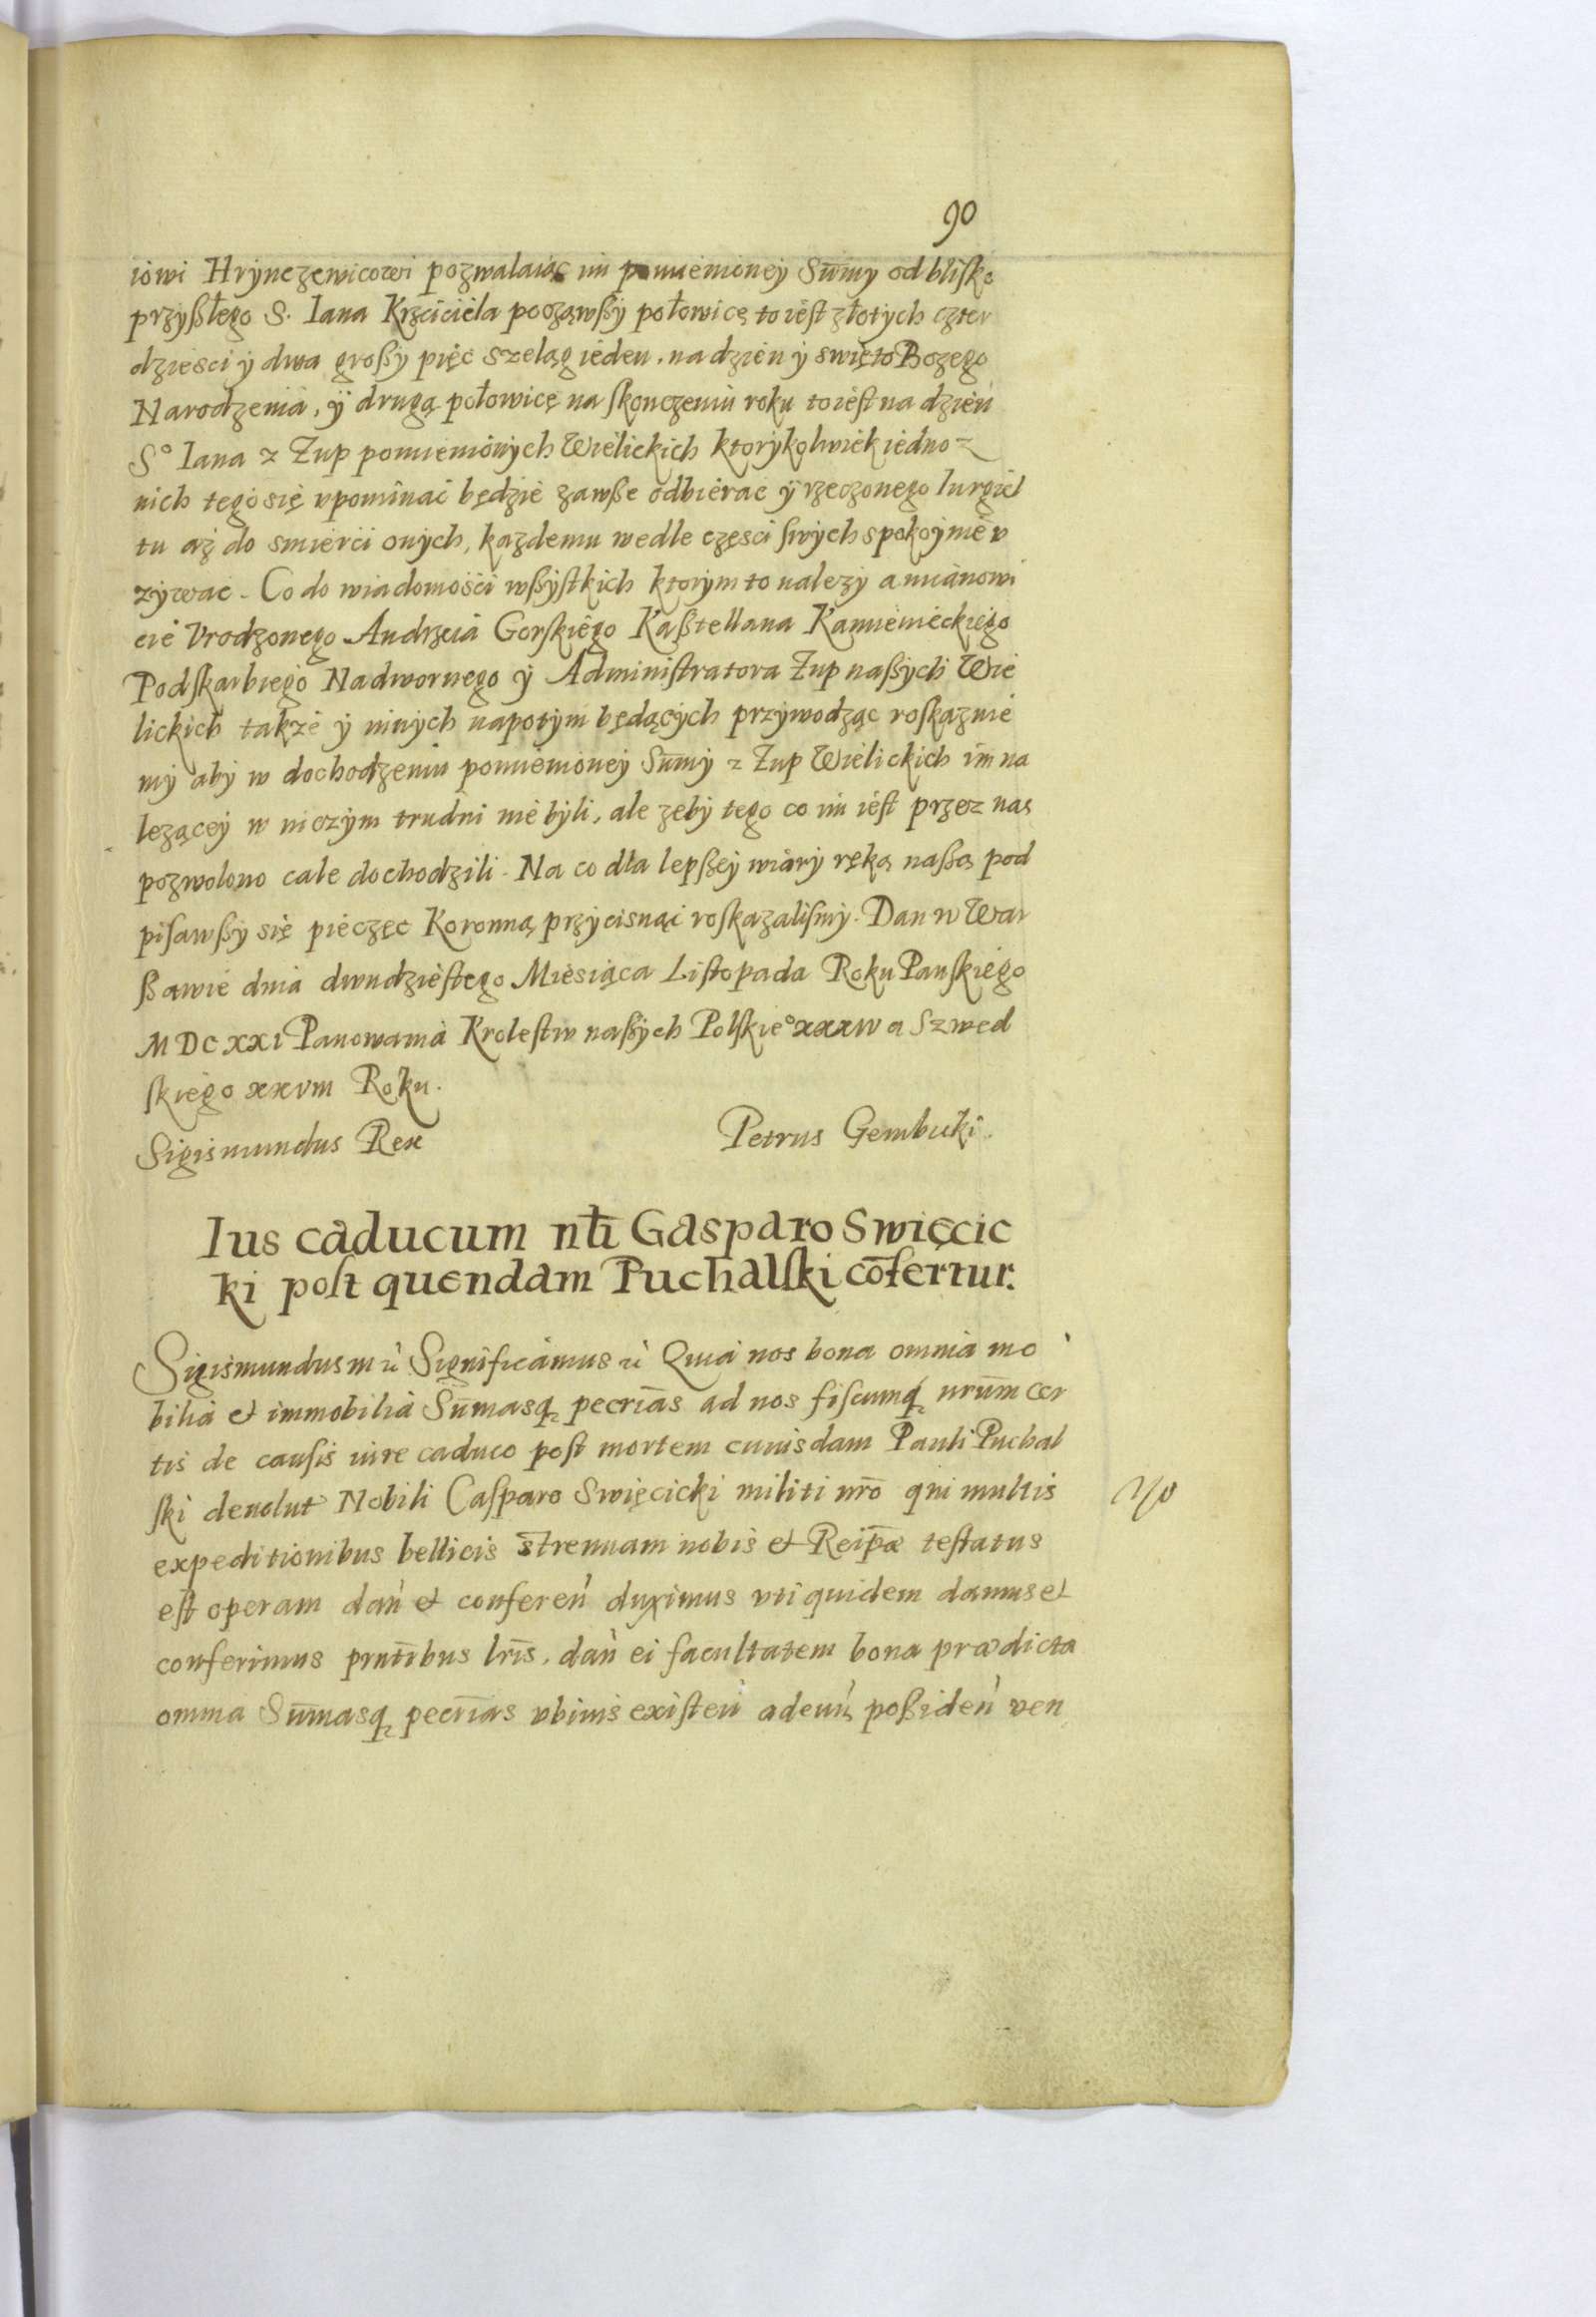 90
iowi Hrynczewicowi pozwalaiąc im pomienioney Sūmy od blisko
przyszłego S. Iana Krzciciela począwszy połowicę to iest złotych czter
dziesci y dwa groszy pięc szeląg ieden, na dzien y swięto Bozego
Narodzenia, ÿ drugą połowicę na skonczeniu roku to iest na dzien
Sº Iana z Żup pomienionych Wielickich ktorykolwiek iedno z
nich tego się vpominac będzie zawsze odbierac ÿ rzeczonego Iurgiel
tu aż do smierci onych, kazdemu wedle częsci swych spokoynie v
zywac. Co do wiadomosci wszystkich ktorym to nalezy a mianowi
cie Vrodzonego Andrzeia Gorskiego Kasztellana Kamienieckiego
Podskarbiego Nadwornego y Administratora Żup naszych Wie
lickich takze y innych napotym będących przywodząc roskazuie
my aby w dochodzeniu pomienioney Sūmy z Żup Wielickich im na
lezącey w niczym trudni nie byli, ale zeby tego co im iest przez nas
pozwolono cale dochodzili. Na co dla lepszey wiary ręką naszą pod
pisawszy się pieczęc Koronną przycisnąc roskazalismy. Dan w War
szawie dnia dwudziestego Miesiąca Listopada Roku Panskiego
MDCXXI Panowania Krolestw naszych Polskieº XXXIV a Szwed
skiego XXVIII Roku.
Sigismundus Rex Petrus Gembicki.
Ius caducum nbli Gasparo Swięcic
ki post quendam Puchalski cōfertur.
Sigismundus III ec̀ Significamus ec̀ Quia nos bona omnia mo
bilia et immobilia Sūmasq̨ pecrīas ad nos fiscumq̨ nrūm cer
tis de causis iure caduco post mortem cuiusdam Pauli Puchal
ski deuolut Nobili Casparo Swięcicki militi nrō qui multis
expeditionibus bellicis strenuam nobis et Reip̄æ testatus
est operam dań et confereń duximus vti quidem damus et
conferimus prntībus lrīs, dań ei facultatem bona prædicta
omnia Sūmasq̨ pecrīas vbiuis existeń adeuń, possideń ven